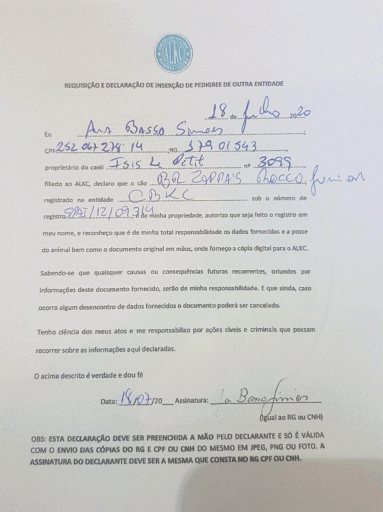 ALKC
REQUISIÇÃO E DECLARAÇÃO DE INSERÇÃO DE PEDIGREE DE OUTRA ENTIDADE
18 de Julho 2020
Eu Ana Basso Simoes
CPF 252 067 278 14 RG: 17901543
proprietário do canil Isis Le Petit nº 3099
filiado ao ALKC, declaro que o cão Zappa's Rocco Junior
registrado na entidade CBKC sob o número de
registro de minha propriedade, autorizo que seja feito o registro em
meu nome, e reconheço que é de minha total responsabilidade os dados fornecidos e a posse
do animal bem como o documento original em mãos, onde forneço a cópia digital para o ALKC.
Sabendo-se que quaisquer causas ou consequências futuras recorrentes, oriundos por
informações deste documento fornecido, serão de minha responsabilidade. E que ainda, caso
ocorra algum desencontro de dados fornecidos o documento poderá ser cancelado.
Tenho ciência dos meus atos e me responsabilizo por ações cíveis e criminais que possam
recorrer sobre as informações aqui declaradas.
O acima descrito é verdade e dou fé
Data: 18/07/20__ Assinatura:
(Igual ao RG ou CNH)
OBS: ESTA DECLARAÇÃO DEVE SER PREENCHIDA A MÃO PELO DECLARANTE E SÓ É VÁLIDA
COM O ENVIO DAS CÓPIAS DO RG E CPF OU CNH DO MESMO EM JPEG, PNG OU FOTO. A
ASSINATURA DO DECLARANTE DEVE SER A MESMA QUE CONSTA NO RG CPF OU CNH.